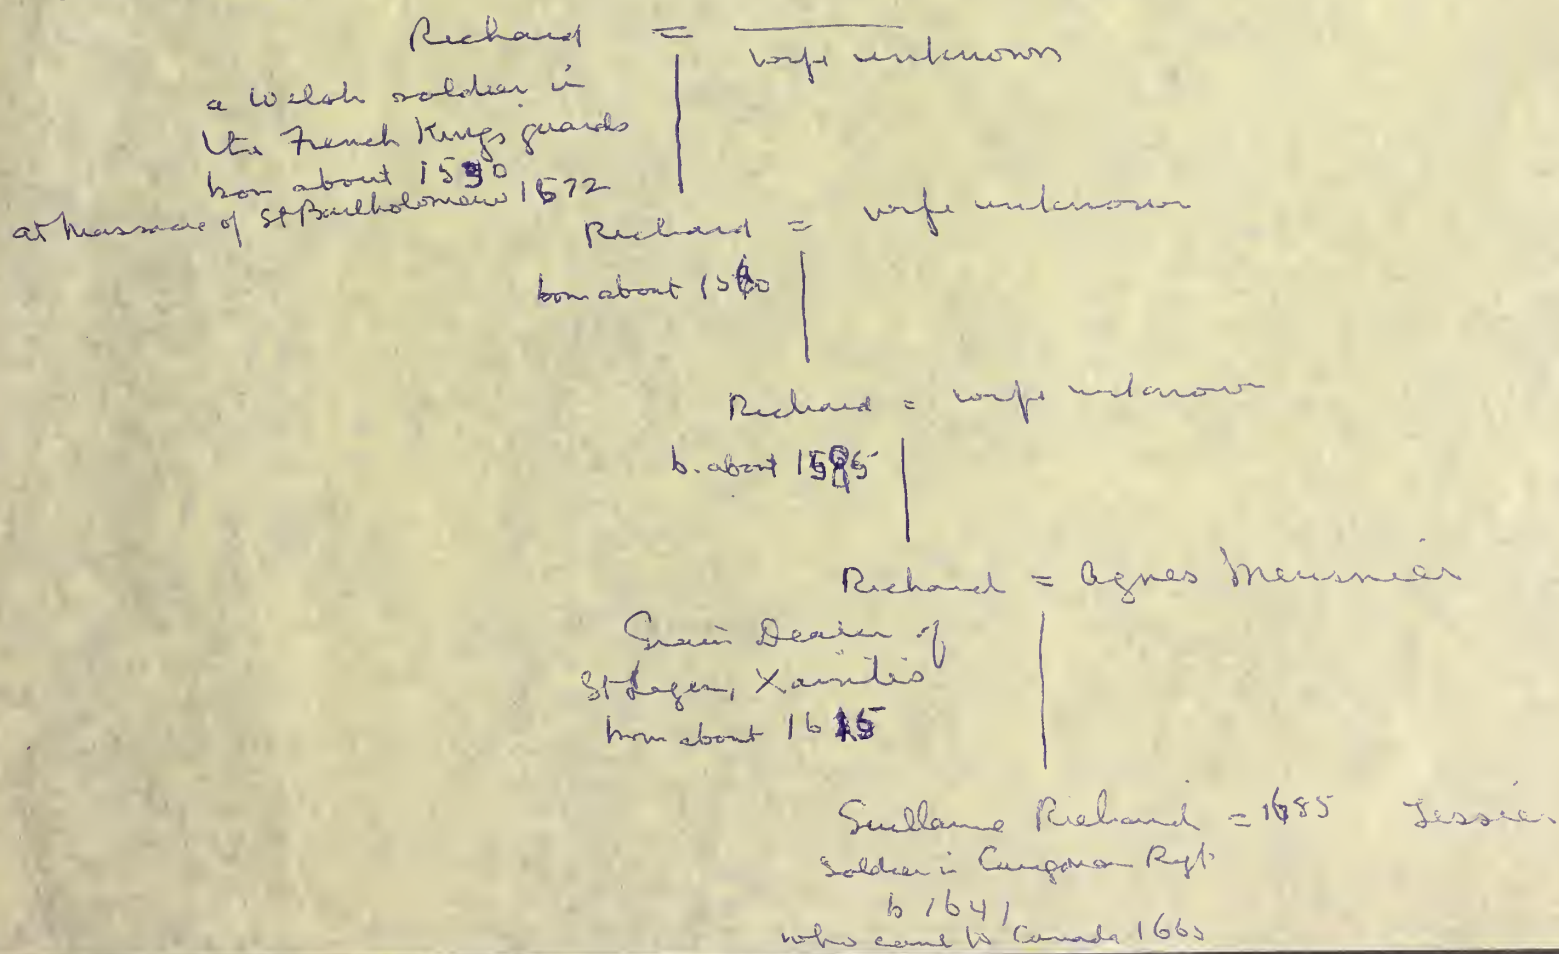 Richard = wife unknown
a Welsh soldier in
the French Kings guards
born about 1530
at Massacre of St Bartholomew 1572
Richard = wife unknown
born about 1560
Richard = wife unknown
b. about 1585
Richard = Agnes Meusnier
Grain Dealer of
St Leger, Xaintes
born about 1615
Guillaume Richard = 1685 Tessier
soldier in Regt
b 1641
who came to Canada 166